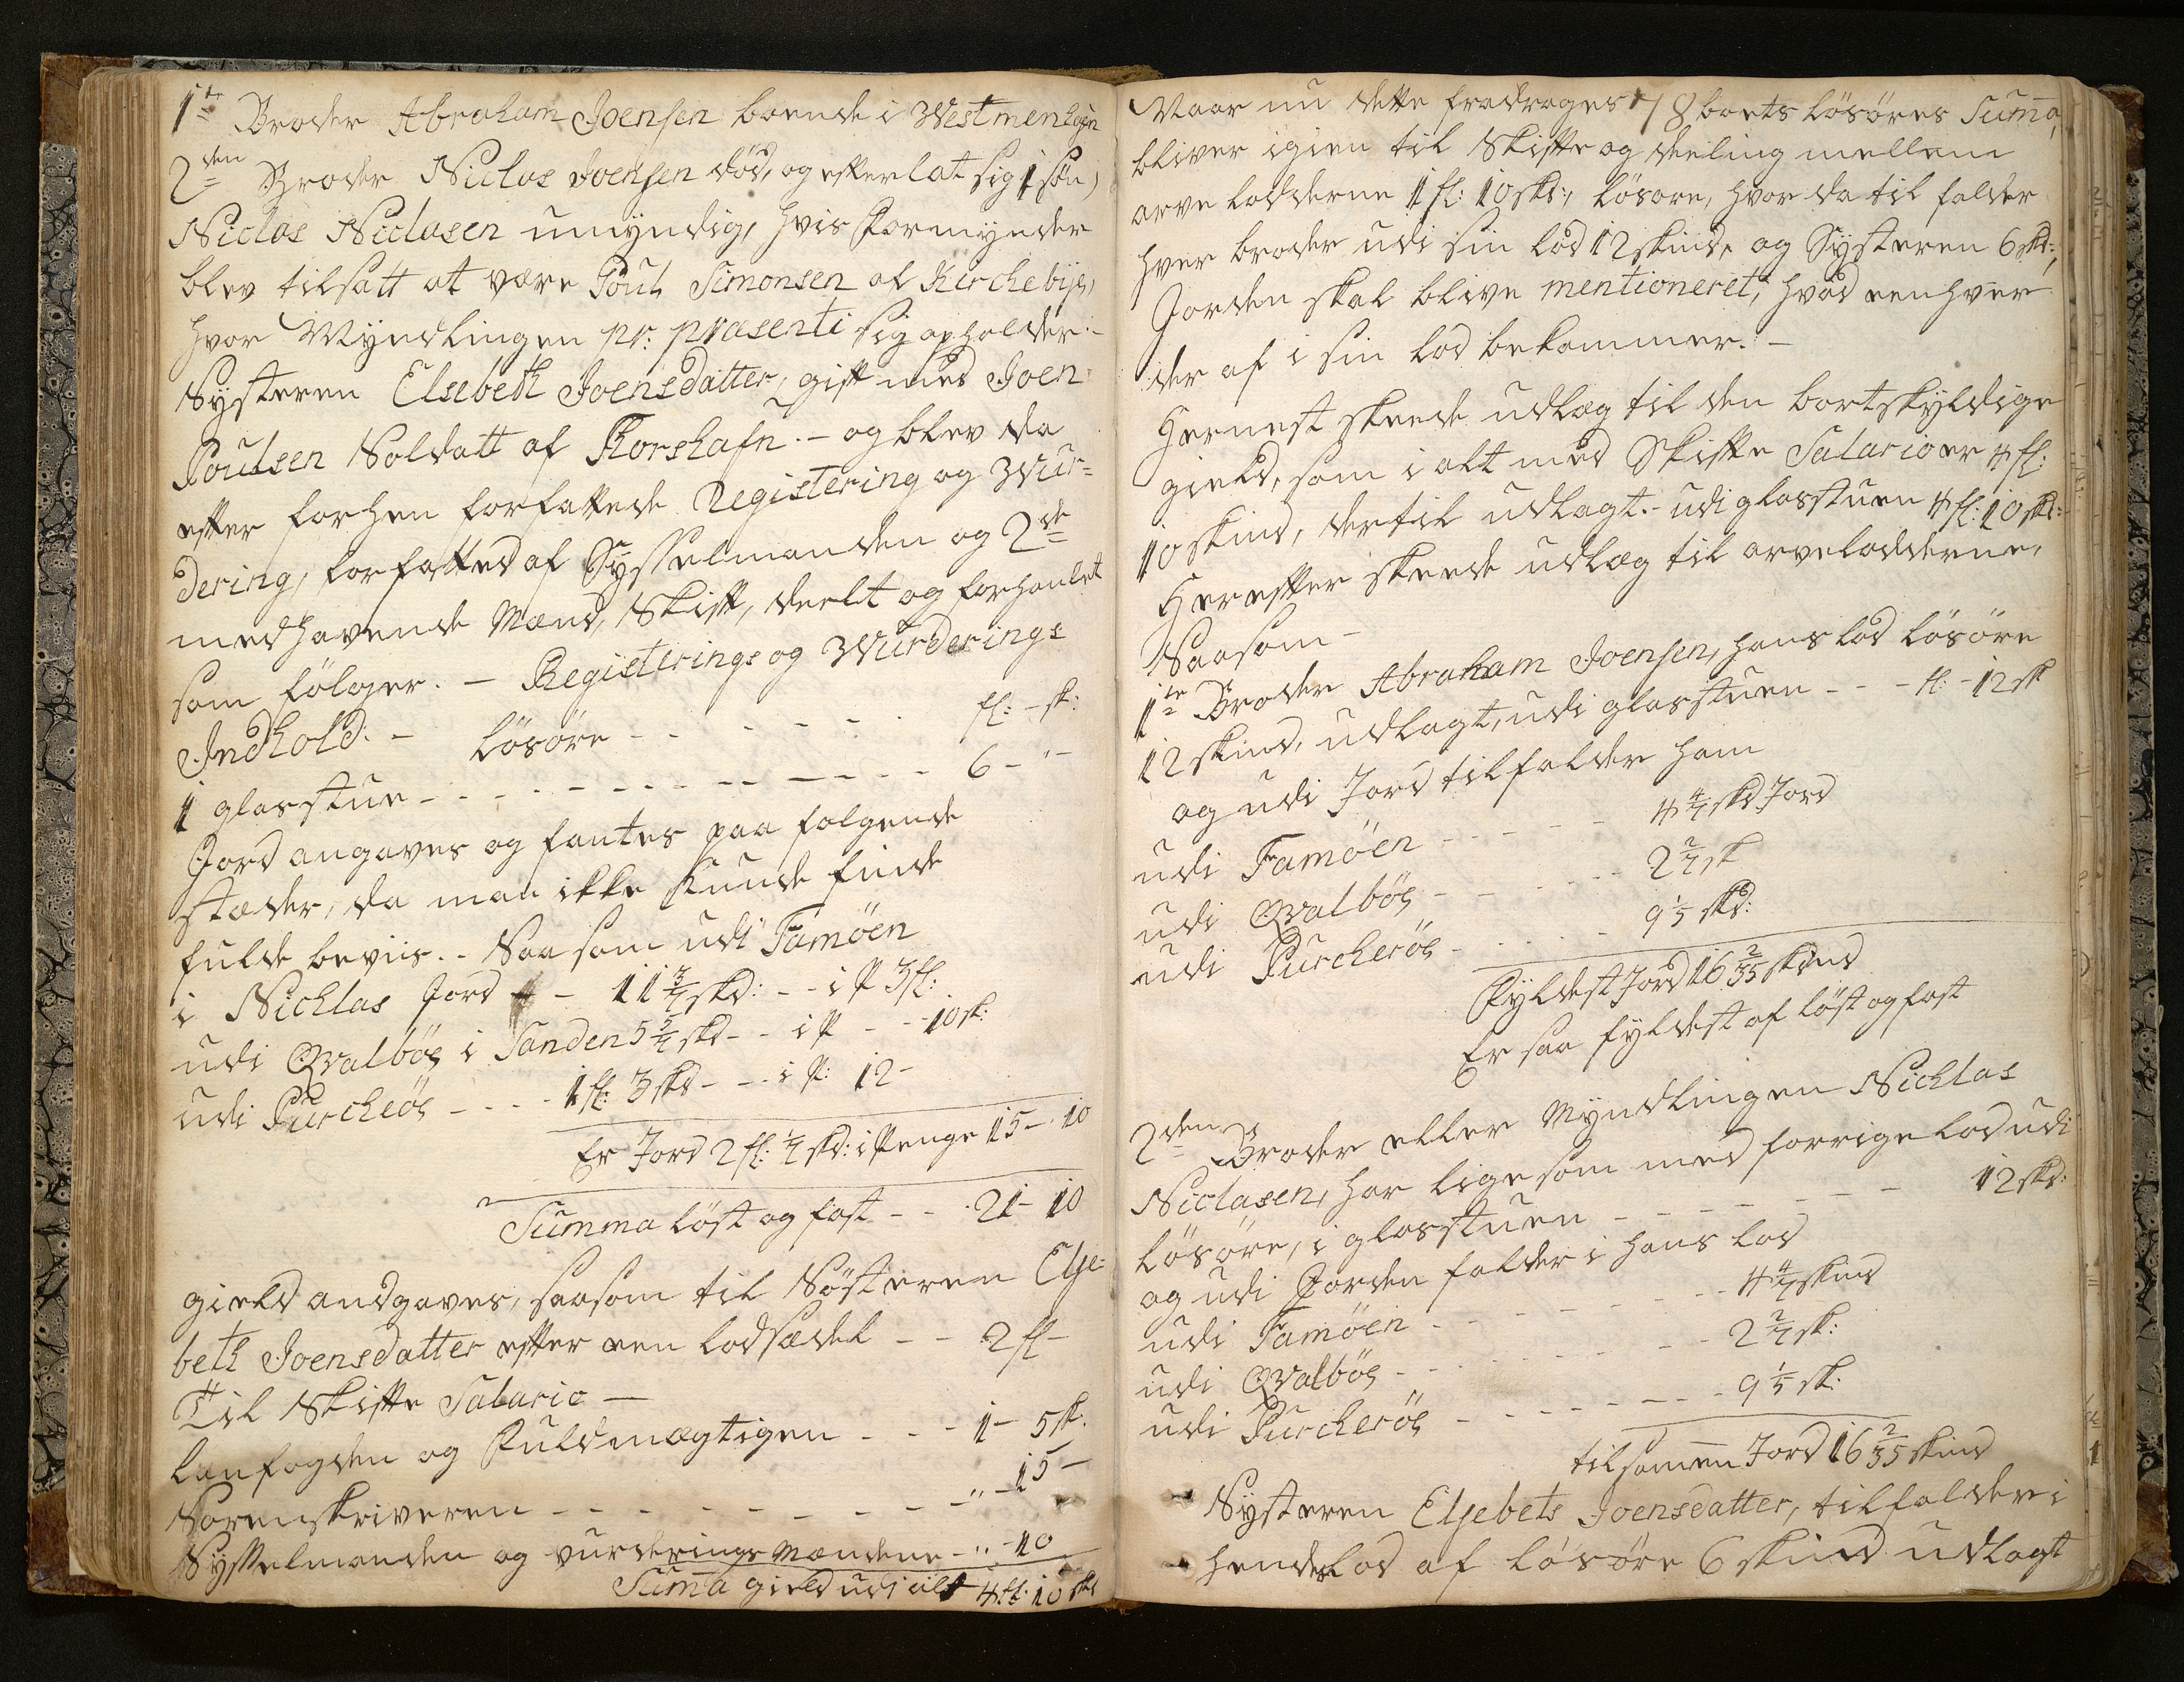 1te Broder Abraham Joensen boende i Westmenhafn
2den Broder Niclas Joensen død, og efterlat sig 1 Søn,
Niclas Niclasen umyndig, hvis Formynder
blev tilsatt at være Poul Simonsen af Kirchebye,
hvor Myndlingen pr: præsenti sig opholder. -
Systeren Elsebeth Joensdatter, gift med Joen
Poulsen Soldatt af Thorshafn. - og blev da
efter forhen forfattede Registering og Wur-
dering, forfatted af Sysselmanden og 2de
medhavende Mænd, Skift, deelt og forhanlet
som følger. - Registerings og Wurderings
Indhold. - løsøre - - - - - - fl: - sk:
1 glasstue - - - - - - - - - - - - 6 - " -
Jord angaves og fantes paa følgende
stæder, da man ikke kunde finde
fulde beviis. - Saasom udi Famöen
i Nichlas Jord - - 11 3/7 skd: - - i P 3 fl:
udi Qvalböe i Sanden 5 5/7 skd - - i P - - 10 sk:
udi Purcheöe - - - - 1 fl: 3 skd - - - i P: 12 -
Er Jord 2 fl: 1/7 skd: i Penge 15 - 10
Summa løst og fast - - - 21 - 10
gield andgaves, saasom til Søsteren Else-
beth Joensdatter efter een lodsædel - - 2 fl -
Til Skifte Salario -
lanfogden og Fuldmægtigen - - - 1 - 5 sk.
Sorenskriveren - - - - - - - - - " - 15 -
Sysselmanden og vurderings Mændene - " - 10
Suma gield udi alt 4 fl: 10 skd
Naar nu dette fradrages boets løsøres Suma,
bliver igien til Skifte og deeling mellem
arve lodderne 1 fl: 10 skd:, løsøre, hvor da til falder
hver broder udi sin lod 12 skind, og Systeren 6 skd:,
Jorden skal blive mentioneret, hvad eenhver
der af i sin lod bekommer. -
Hernest skeede udlæg til den bortskyldige
gield, som i alt med Skifte Salario er 4 fl:
10 skind, dertil udlagt. - udi glasstuen 4 fl: 10 skd:
Herefter skeede udlæg til arvelodderne,
Saasom -
1te Broder Abraham Joensen, hans lod løsøre
12 skind, udlagt, udi glasstuen - - - fl: - 12 sk
og udi Jord tilfalder ham
udi Famöen - - - - - 4 4/7 skd Jord
udi Qvalböe - - - - - 2 2/7 sk
udi Purcheröe - - - - - 9 1/5 skd:
Fyldest Jord 16 2/35 skind
Er saa fyldest af løst og fast
2den Broder eller Myndlingen Nichlas
Niclasen, har ligesom med forrige lod udi
løsøre, i glasstuen - - - - - - - 12 skd:
og udi Jorden falder i hans lod
udi Famöen - - - - - - - 4 4/7 skind
udi Qvalböe - - - - - - - 2 2/7 sk:
udi Purcheröe - - - - - - - 9 1/5 sk:
tilsamen Jord 16 2/35 skind
Systeren Elsebets Joensdatter, tilfalder i
hendes lod af løsøre 6 skind udlagt